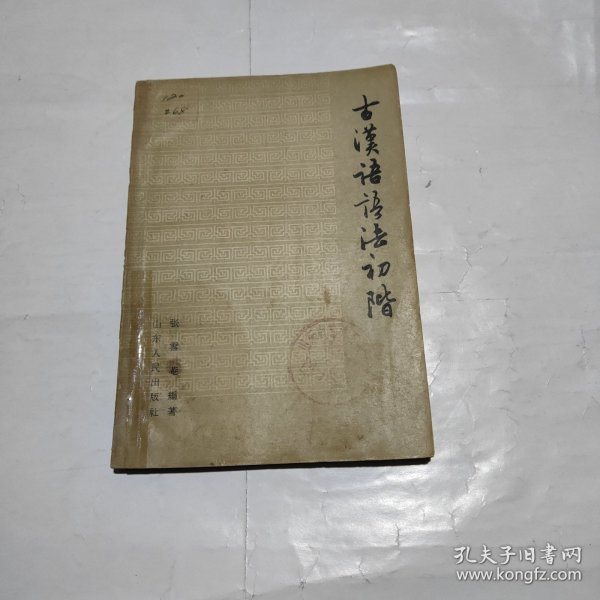 古漢語語法初階
张雪庵 编著
山东人民出版社
孔夫子旧書网
www.kongfz.com